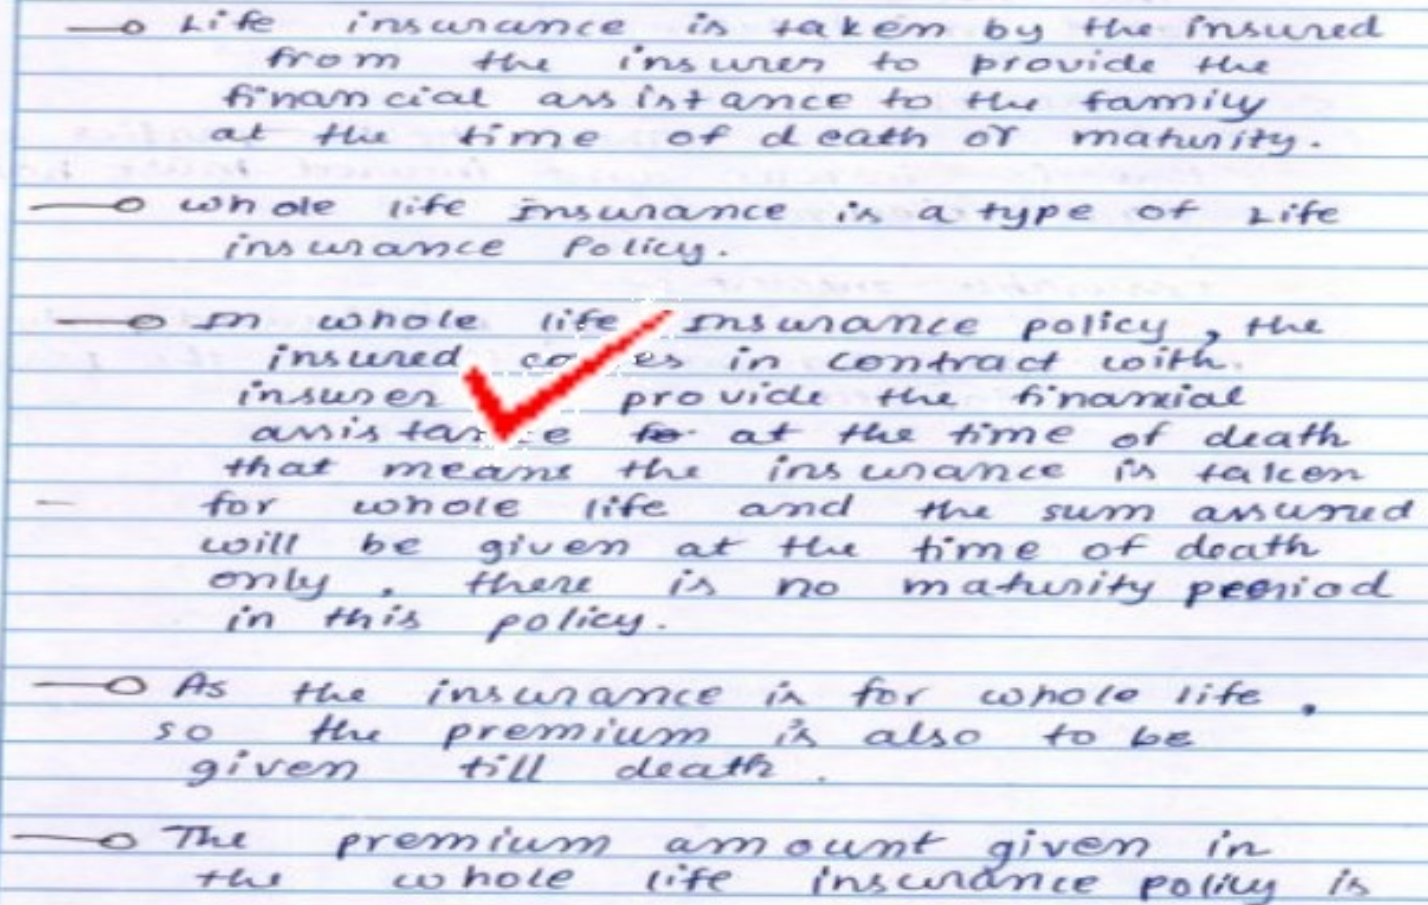 Life insurance is taken by the insured
from the insurer to provide the
financial assistance to the family
at the time of death or maturity.
whole life Insurance is a type of Life
insurance Policy.
In whole life Insurance policy, the
insured comes in contract with
insurer provide the financial
assistance to at the time of death
that means the insurance is taken
for whole life and the sum assured
will be given at the time of death
only, there is no maturity period
in this policy.
As the insurance is for whole life,
so the premium is also to be
given till death.
The premium amount given in
the whole life insurance policy is